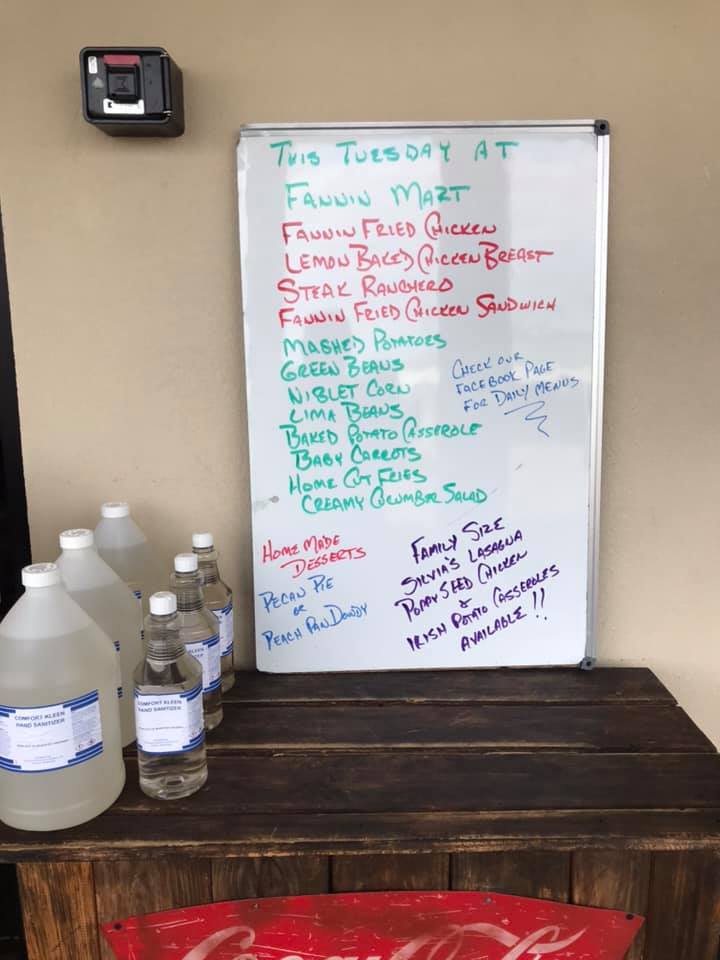 This Tuesday At
Fannin Mart
Fannin Fried Chicken
Lemon Baked Chicken Breast
Steak Ranchero
Fannin Fried Chicken Sandwich
Mashed Potatoes
Green Beans
Niblet Corn
Lima Beans
Baked Potato Casserole
Baby Carrots
Home Cut Fries
Creamy Cucumber Salad
Check our
Facebook Page
For Daily Menus
Home Made
Desserts
Pecan Pie
or
Peach Pan Dowdy
Family Size
Silvia's Lasagna
Poppy Seed Chicken
&
Irish Potato Casseroles
Available!!
COMFORT KLEEN
HAND SANITIZER
COMFORT KLEEN
HAND SANITIZER
Coca-Cola